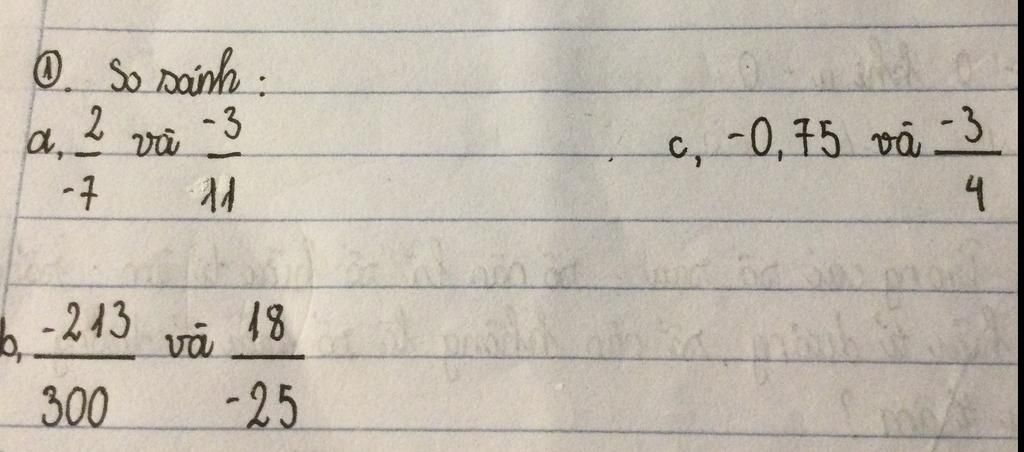 ①. So sánh :
a, 2/-7 và -3/11
c, -0,75 và -3/4
b, -213/300 và 18/-25